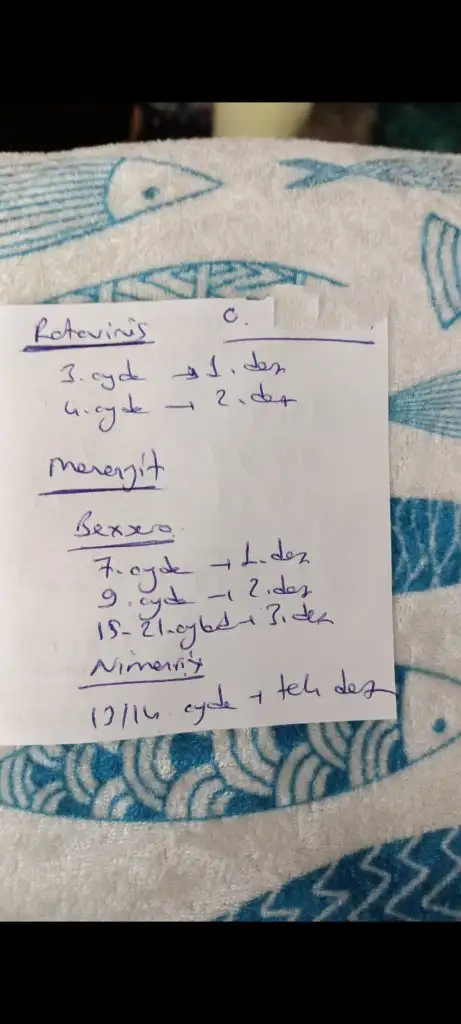 Rotavirüs
3. ayda → 1. doz
4. ayda → 2. doz
Menenjit
Bexxero
7. ayda → 1. doz
9. ayda → 2. doz
15-21. ayda → 3. doz
Nimenrix
/14. ayda → tek doz